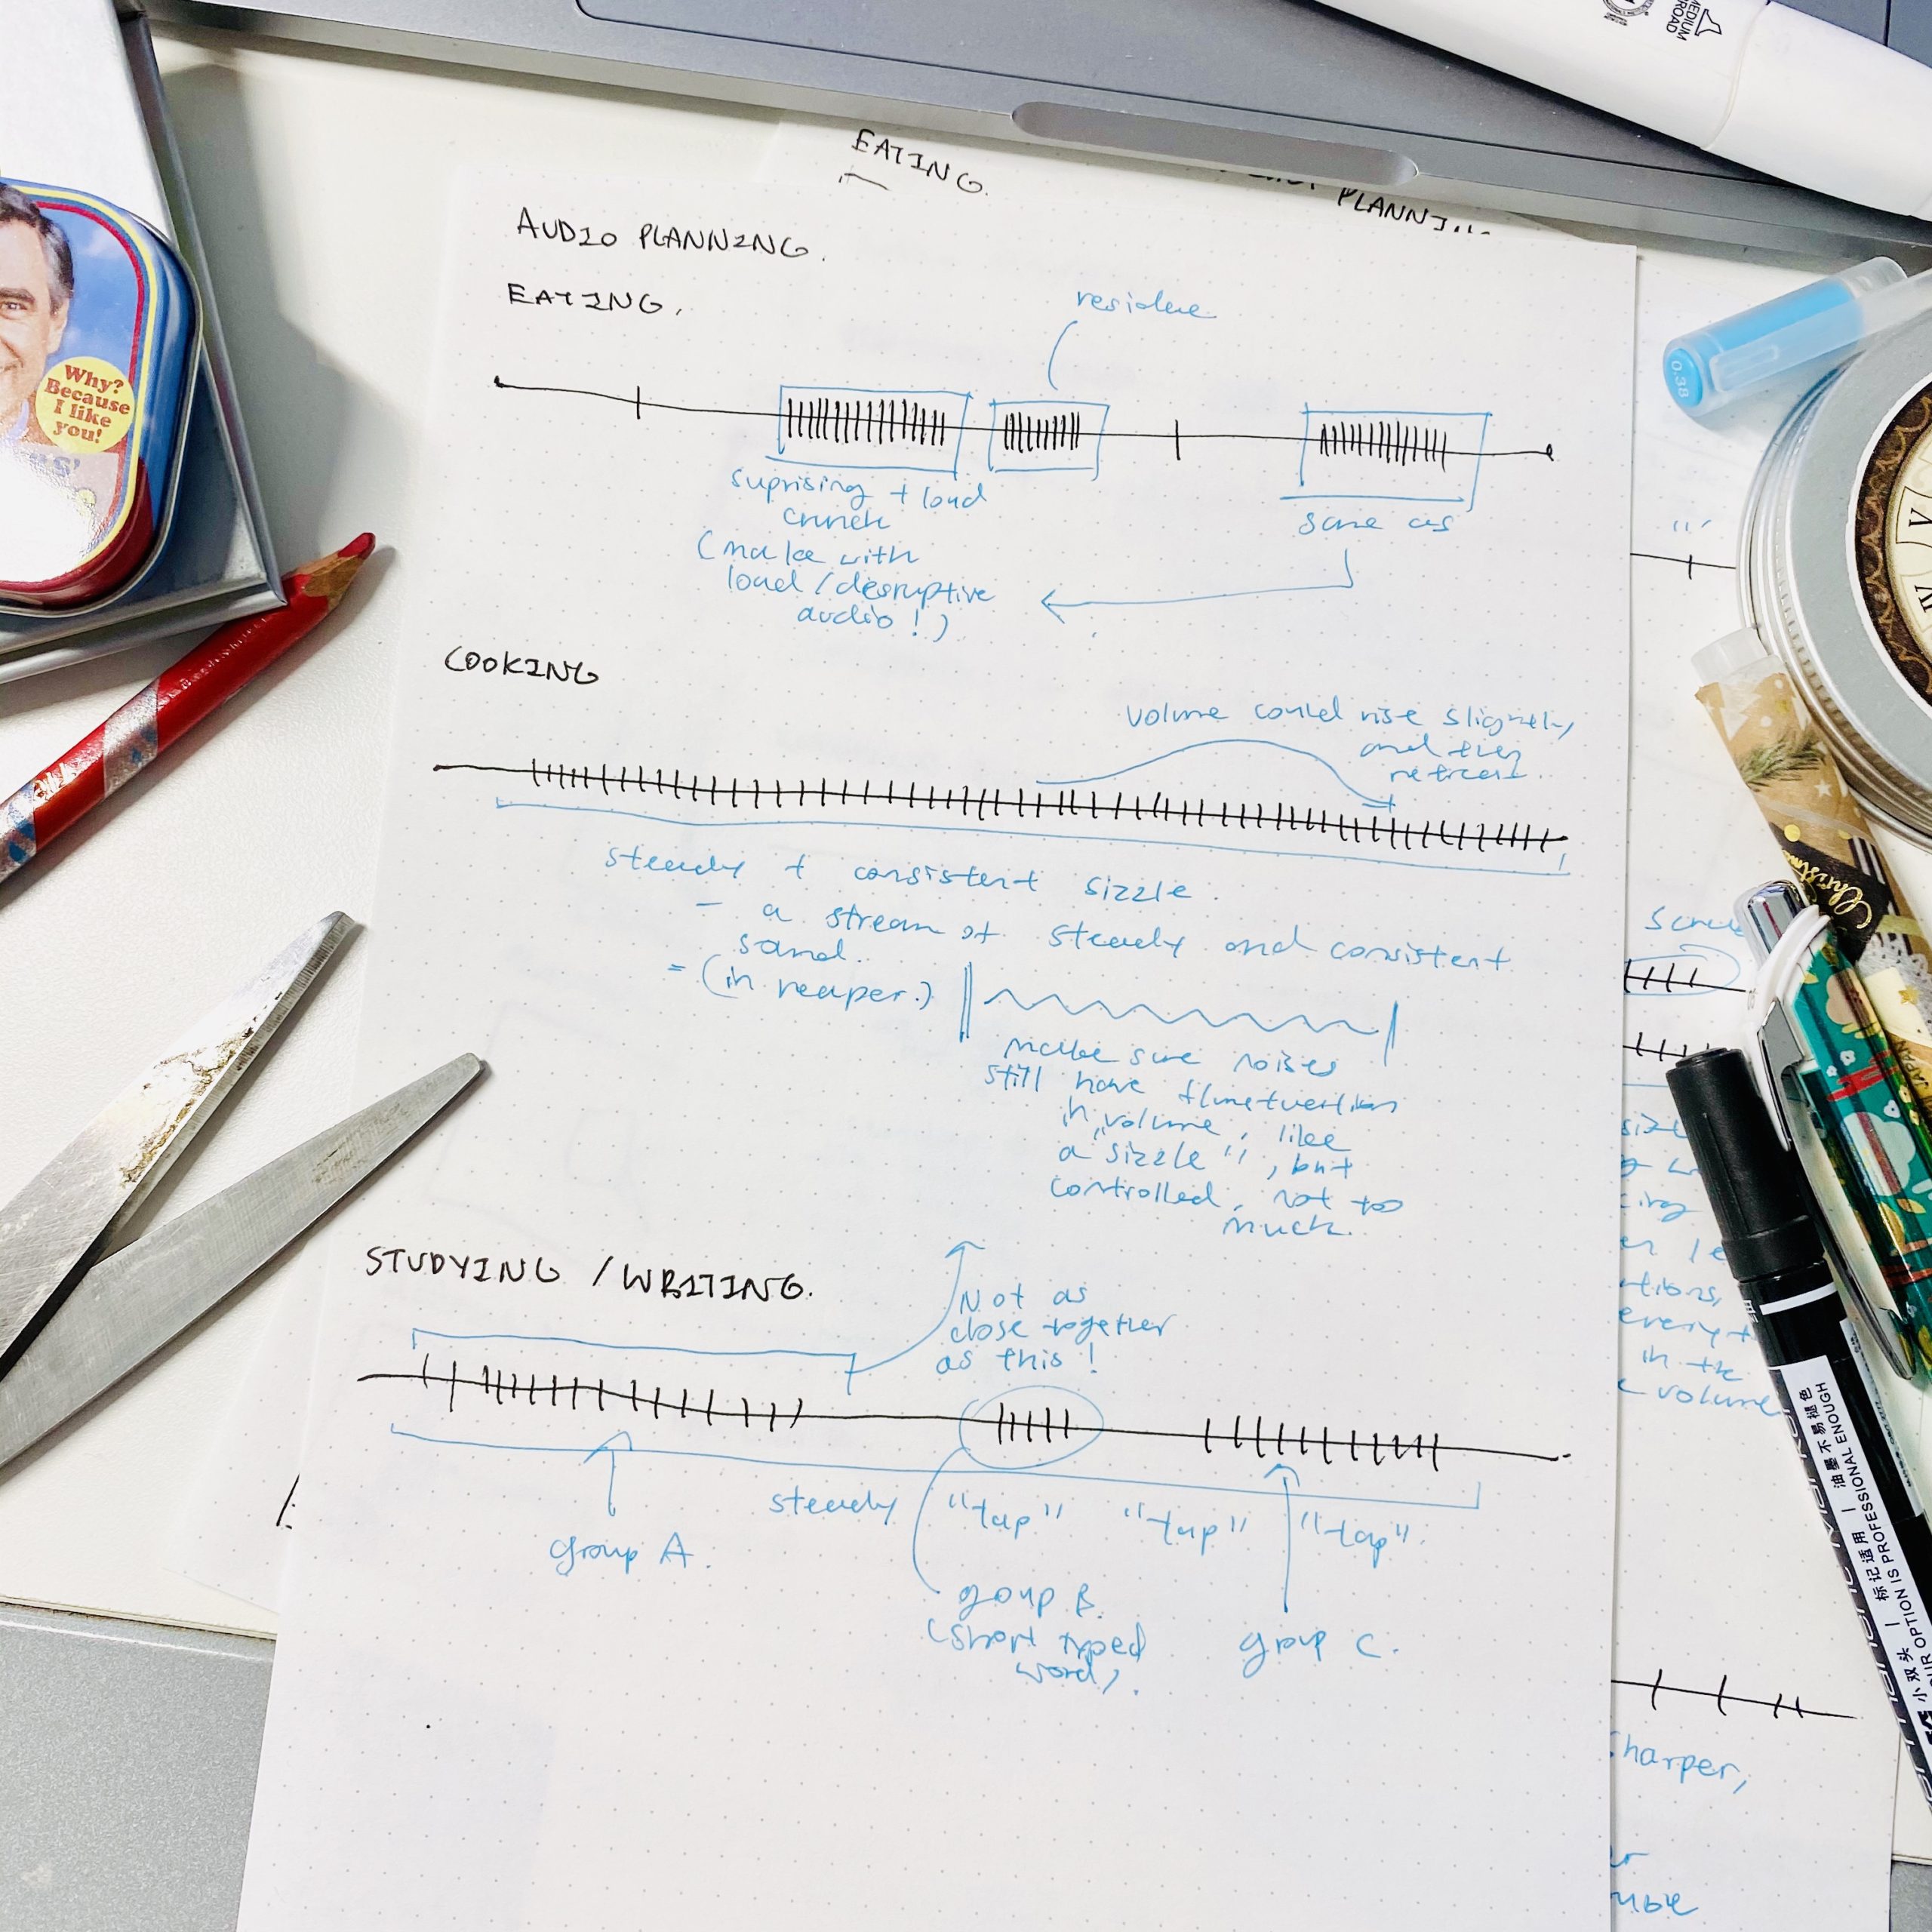 MEDIUM
BROAD
EATING.
PLANNI
AUDIO PLANNING.
EATING.
residue
suprising + loud
crunch
(make with
loud/desruptive
audio!)
same as
COOKING
volume could rise slightly
and then
retreat.
steady + consistent sizzle.
- a stream of steady and consistent
sand.
= (in reaper.)
make sure noises
still have
in volume, like
a "sizzle", but
controlled, not too
much.
STUDYING / WRITING.
Not as
close together
as this!
steady "tap" "tap" "tap".
group A.
group B.
(short typed
word).
group C.
Why?
Because
I like
you!
0.38
Christm
JAPAN
in the
volume
harper,
油墨不易褪色
标记适用
小双头
OUR OPTION IS PROFESSIONAL ENOUGH